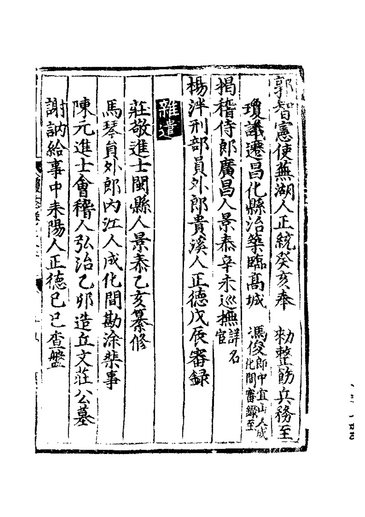 郭智憲使蕪湖人正統癸亥奉　勑整飭兵務至
瓊議遷昌化縣治築臨高城　馮俊郎中宜山人成化間審錄至
揭稽侍郎廣昌人景泰辛未巡撫詳名官
楊泮刑部員外郎貴溪人正德戊辰審録
雜遣
莊敬進士閩縣人景泰乙亥纂修
馬琴貟外郎内江人成化間勘涂棐事
陳元進士會稽人弘治乙卯造丘文莊公墓
謝訥給事中耒陽人正德己巳查盤